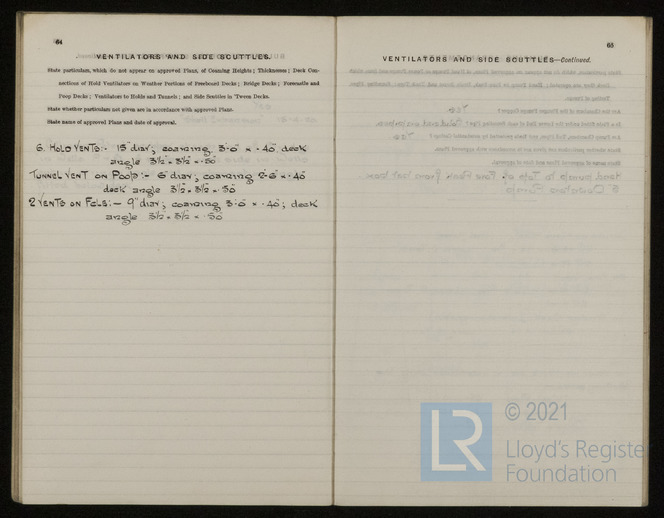 64
VENTILATORS AND SIDE SCUTTLES.
State particulars, which do not appear on approved Plans, of Coaming Heights; Thicknesses; Deck Con-
nections of Hold Ventilators on Weather Portions of Freeboard Decks; Bridge Decks; Forecastle and
Poop Decks; Ventilators to Holds and Tunnels; and Side Scuttles in 'Tween Decks.
State whether particulars not given are in accordance with approved Plans.
State name of approved Plans and date of approval.
6. HOLD VENTS:- 15" diar; coaming 3'-0" × .40 deck
angle 3½" × 3½" × .50
TUNNEL VENT on Poop:- 6" diar; coaming 2'-6" × .40
deck angle 3½ × 3½ × .50
2 VENTS on Fcle:- 9" diar; coaming 3'-0" × .40; deck
angle 3½ × 3½ × .50
65
VENTILATORS AND SIDE SCUTTLES—Continued.
© 2021
Lloyd's Register
Foundation
LR